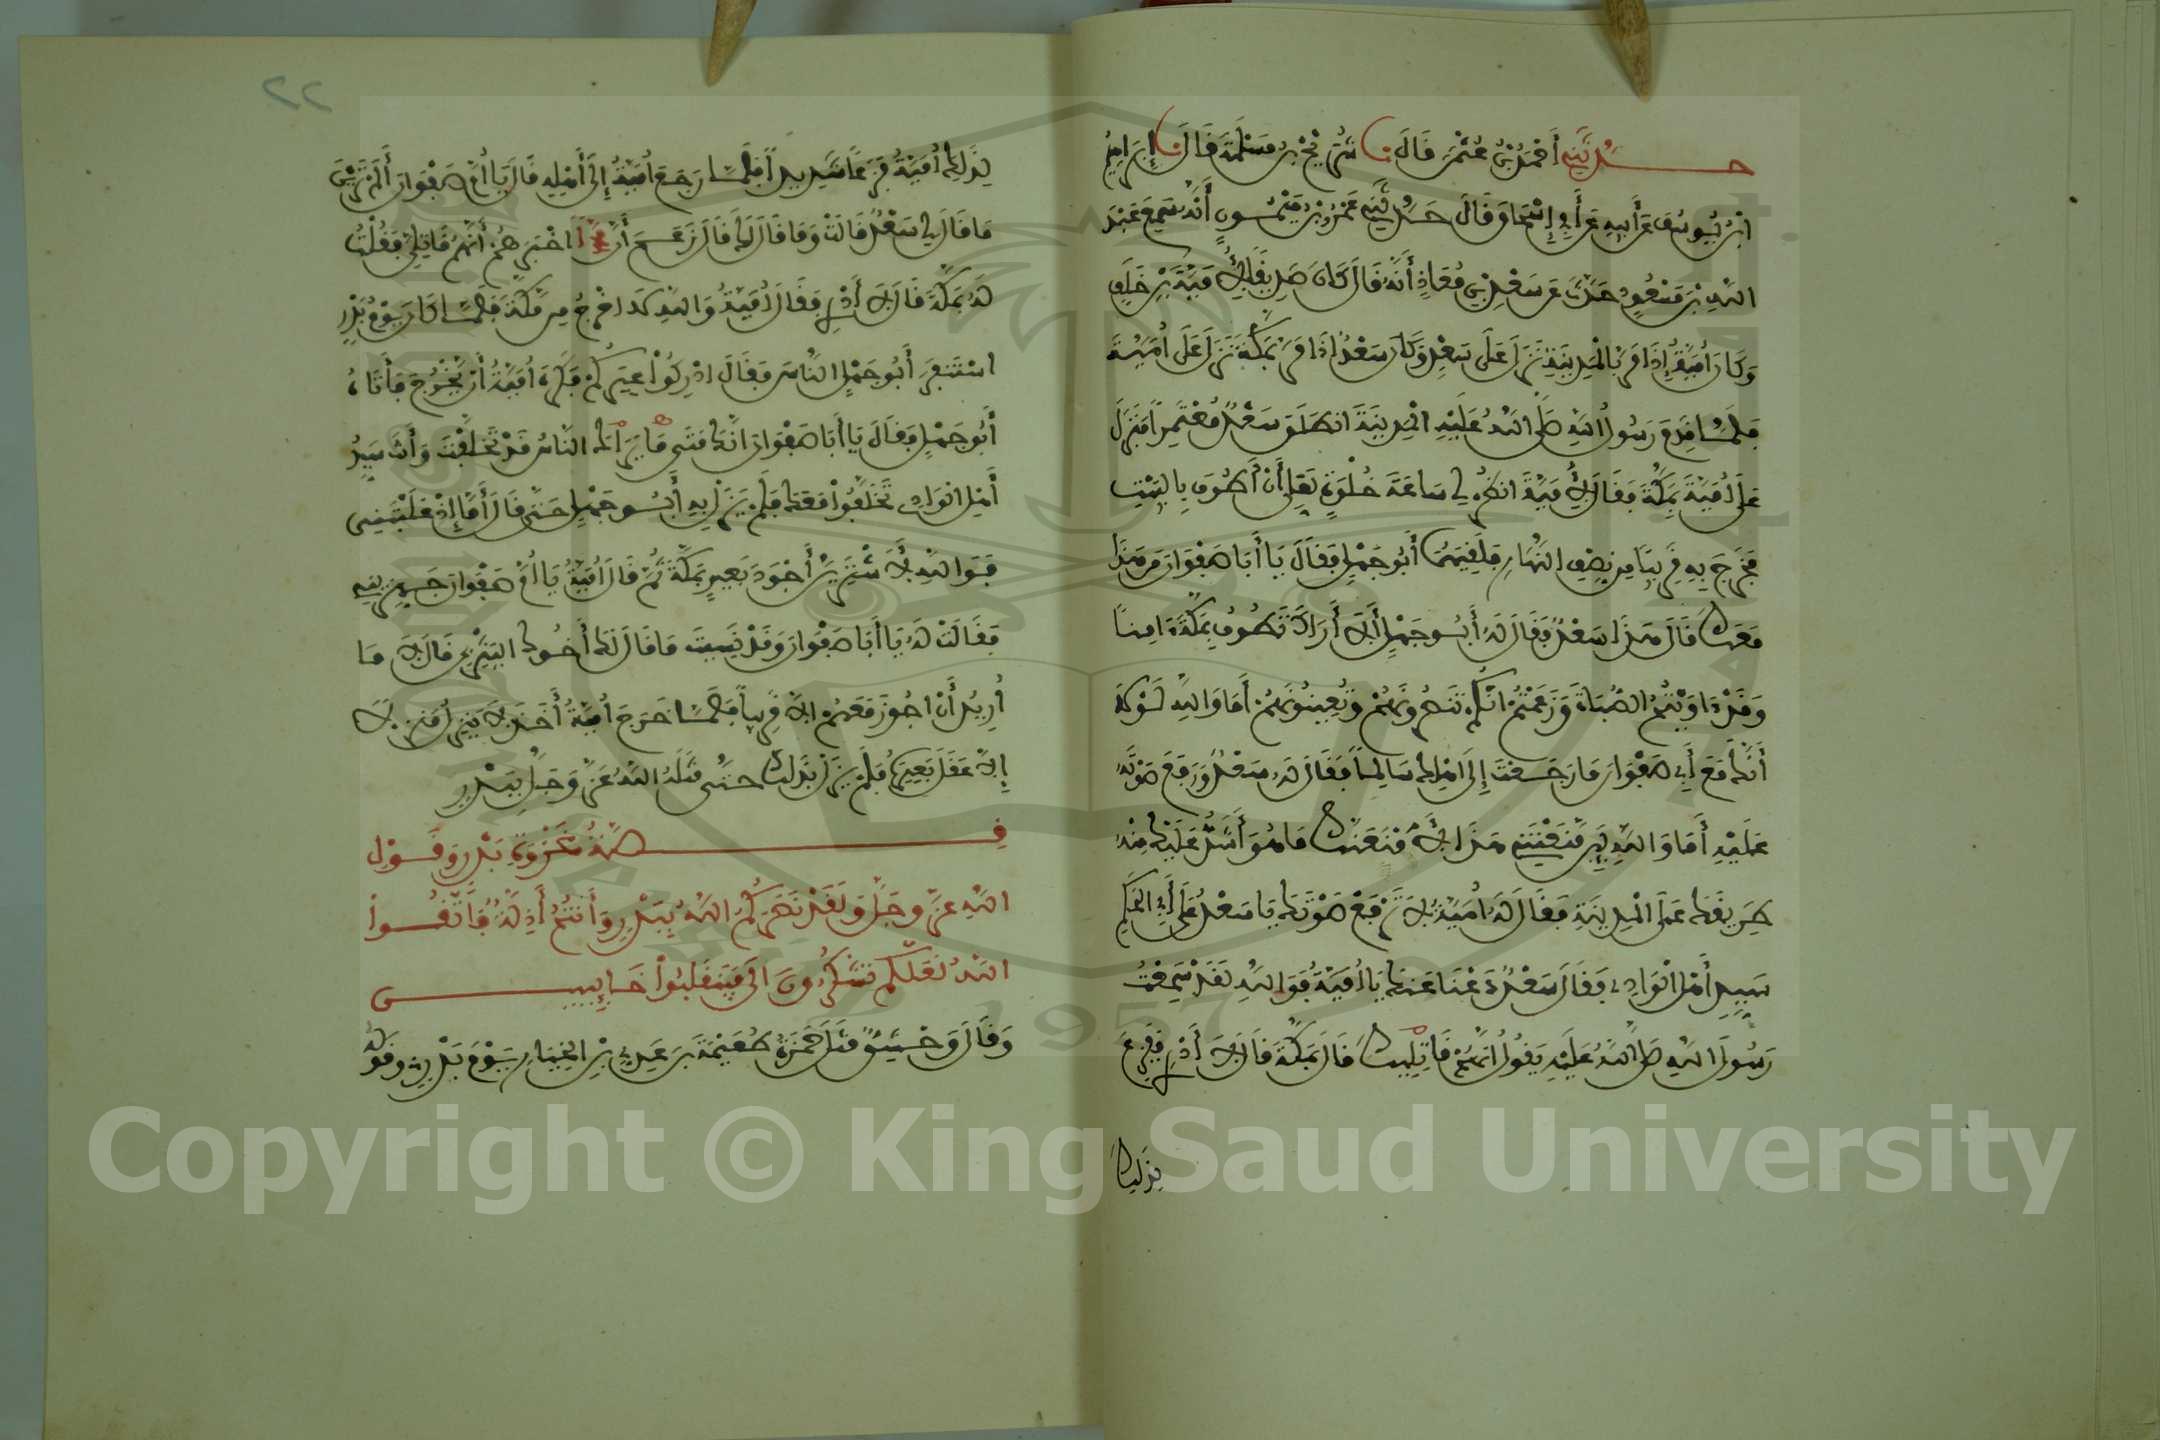 حدثني أحمد بن عثمن قال نا شريح بن مسلمة قال نا إبراهيم
ابن يوسف عن أبيه عن أبي إسحاق قال حدثني عمرو بن ميمون أنه سمع عبد
الله بن مسعود حدث عن سعد بن معاذ أنه قال كان صديقا لأمية بن خلف
وكان أمية إذا مر بالمدينة نزل على سعد وكان سعد إذا مر بمكة نزل على أمية
فلما قدم رسول الله صلى الله عليه المدينة انطلق سعد معتمرا فنزل
على أمية بمكة فقال لأمية انظر لي ساعة خلوة لعلي أن أطوف بالبيت
فخرج به قريبا من نصف النهار فلقيهما أبو جهل فقال يا أبا صفوان من هذا
معك قال هذا سعد فقال له أبو جهل ألا أراك تطوف بمكة ءامنا
وقد ءاويتم الصباة وزعمتم انكم تنصرونهم وتعينونهم أما والله لولا
أنك مع أبي صفوان ما رجعت إلى اهلك سالما فقال له سعد ورفع صوته
عليه أما والله لين منعتني هذا لأمنعنك ما هو أشد عليك منه
طريقك على المدينة فقال له أمية لا ترفع صوتك يا سعد على أبي الحكم
سيد أهل الوادي فقال سعد دعنا عنك يا أمية فوالله لقد سمعت
رسول الله صلى الله عليه يقول انهم قاتليك قال بمكة قال لا أدري ففزع
بذلك
٢٢
لذلك أمية فزعا شديدا فلما رجع أمية إلى أهله قال يا أم صفوان ألم تري
ما قال لي سعد قالت وما قال لك قال زعم أن محمدا اخبرهم أنهم قاتلي فقلت
له بمكة قال لا أدري فقال أمية والله لا اخرج من مكة فلما كان يوم بدر
استنفر أبو جهل الناس فقال ادركوا عيركم فكره أمية أن يخرج فأتاه
أبو جهل فقال يا أبا صفوان انك متى ما يراك الناس قد تخلفت وأنت سيد
أهل الوادي تخلفوا معك فلم يزل به أبو جهل حتى قال أما إذ غلبتني
فوالله لأشترين أجود بعير بمكة ثم قال أمية يا أم صفوان جهزيني
فقالت له يا أبا صفوان وقد نسيت ما قال لك أخوك اليثربي قال لا ما
أريد أن اجوز معهم الا قريبا فلما خرج أمية أخذ لا ينزل منزلا
إلا عقل بعيره فلم يزل بذلك حتى قتله الله عز وجل ببدر
قصة غزوة بدر وقول
الله عز وجل ولقد نصركم الله ببدر وأنتم أذلة فاتقوا
الله لعلكم تشكرون الى فينقلبوا خايبين
وقال وحشي قتل حمزة طعيمة بن عدي بن الخيار يوم بدر وقوله
Copyright © King Saud University
1957